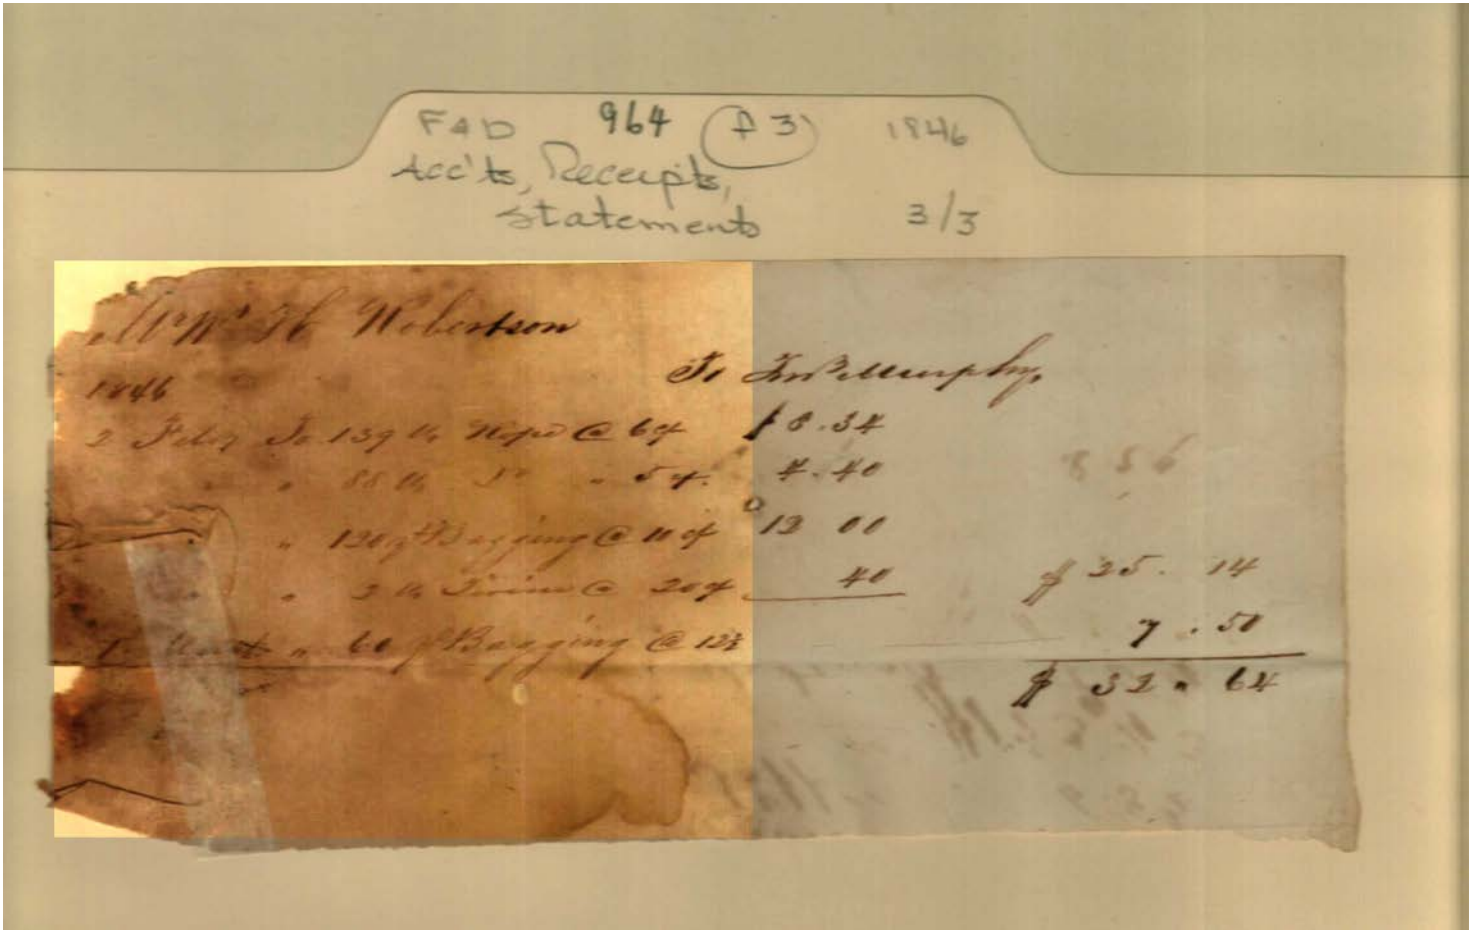 FAD 964 (f 3) 1846
Acc'ts, Receipts,
Statements 3/3
Mr Wm H Robertson
1846 To Jno Murphy
2 Feby To 139 lb Rope @ 6¢ $8.34
" " 88 lb Do " 5¢ 4.40
" 120 yd Bagging @ 10¢ 12 00
" 2 lb Twine @ 20¢ 40 $25.14
1 " 60 yd Bagging @ 12½ 7.50
$32.64